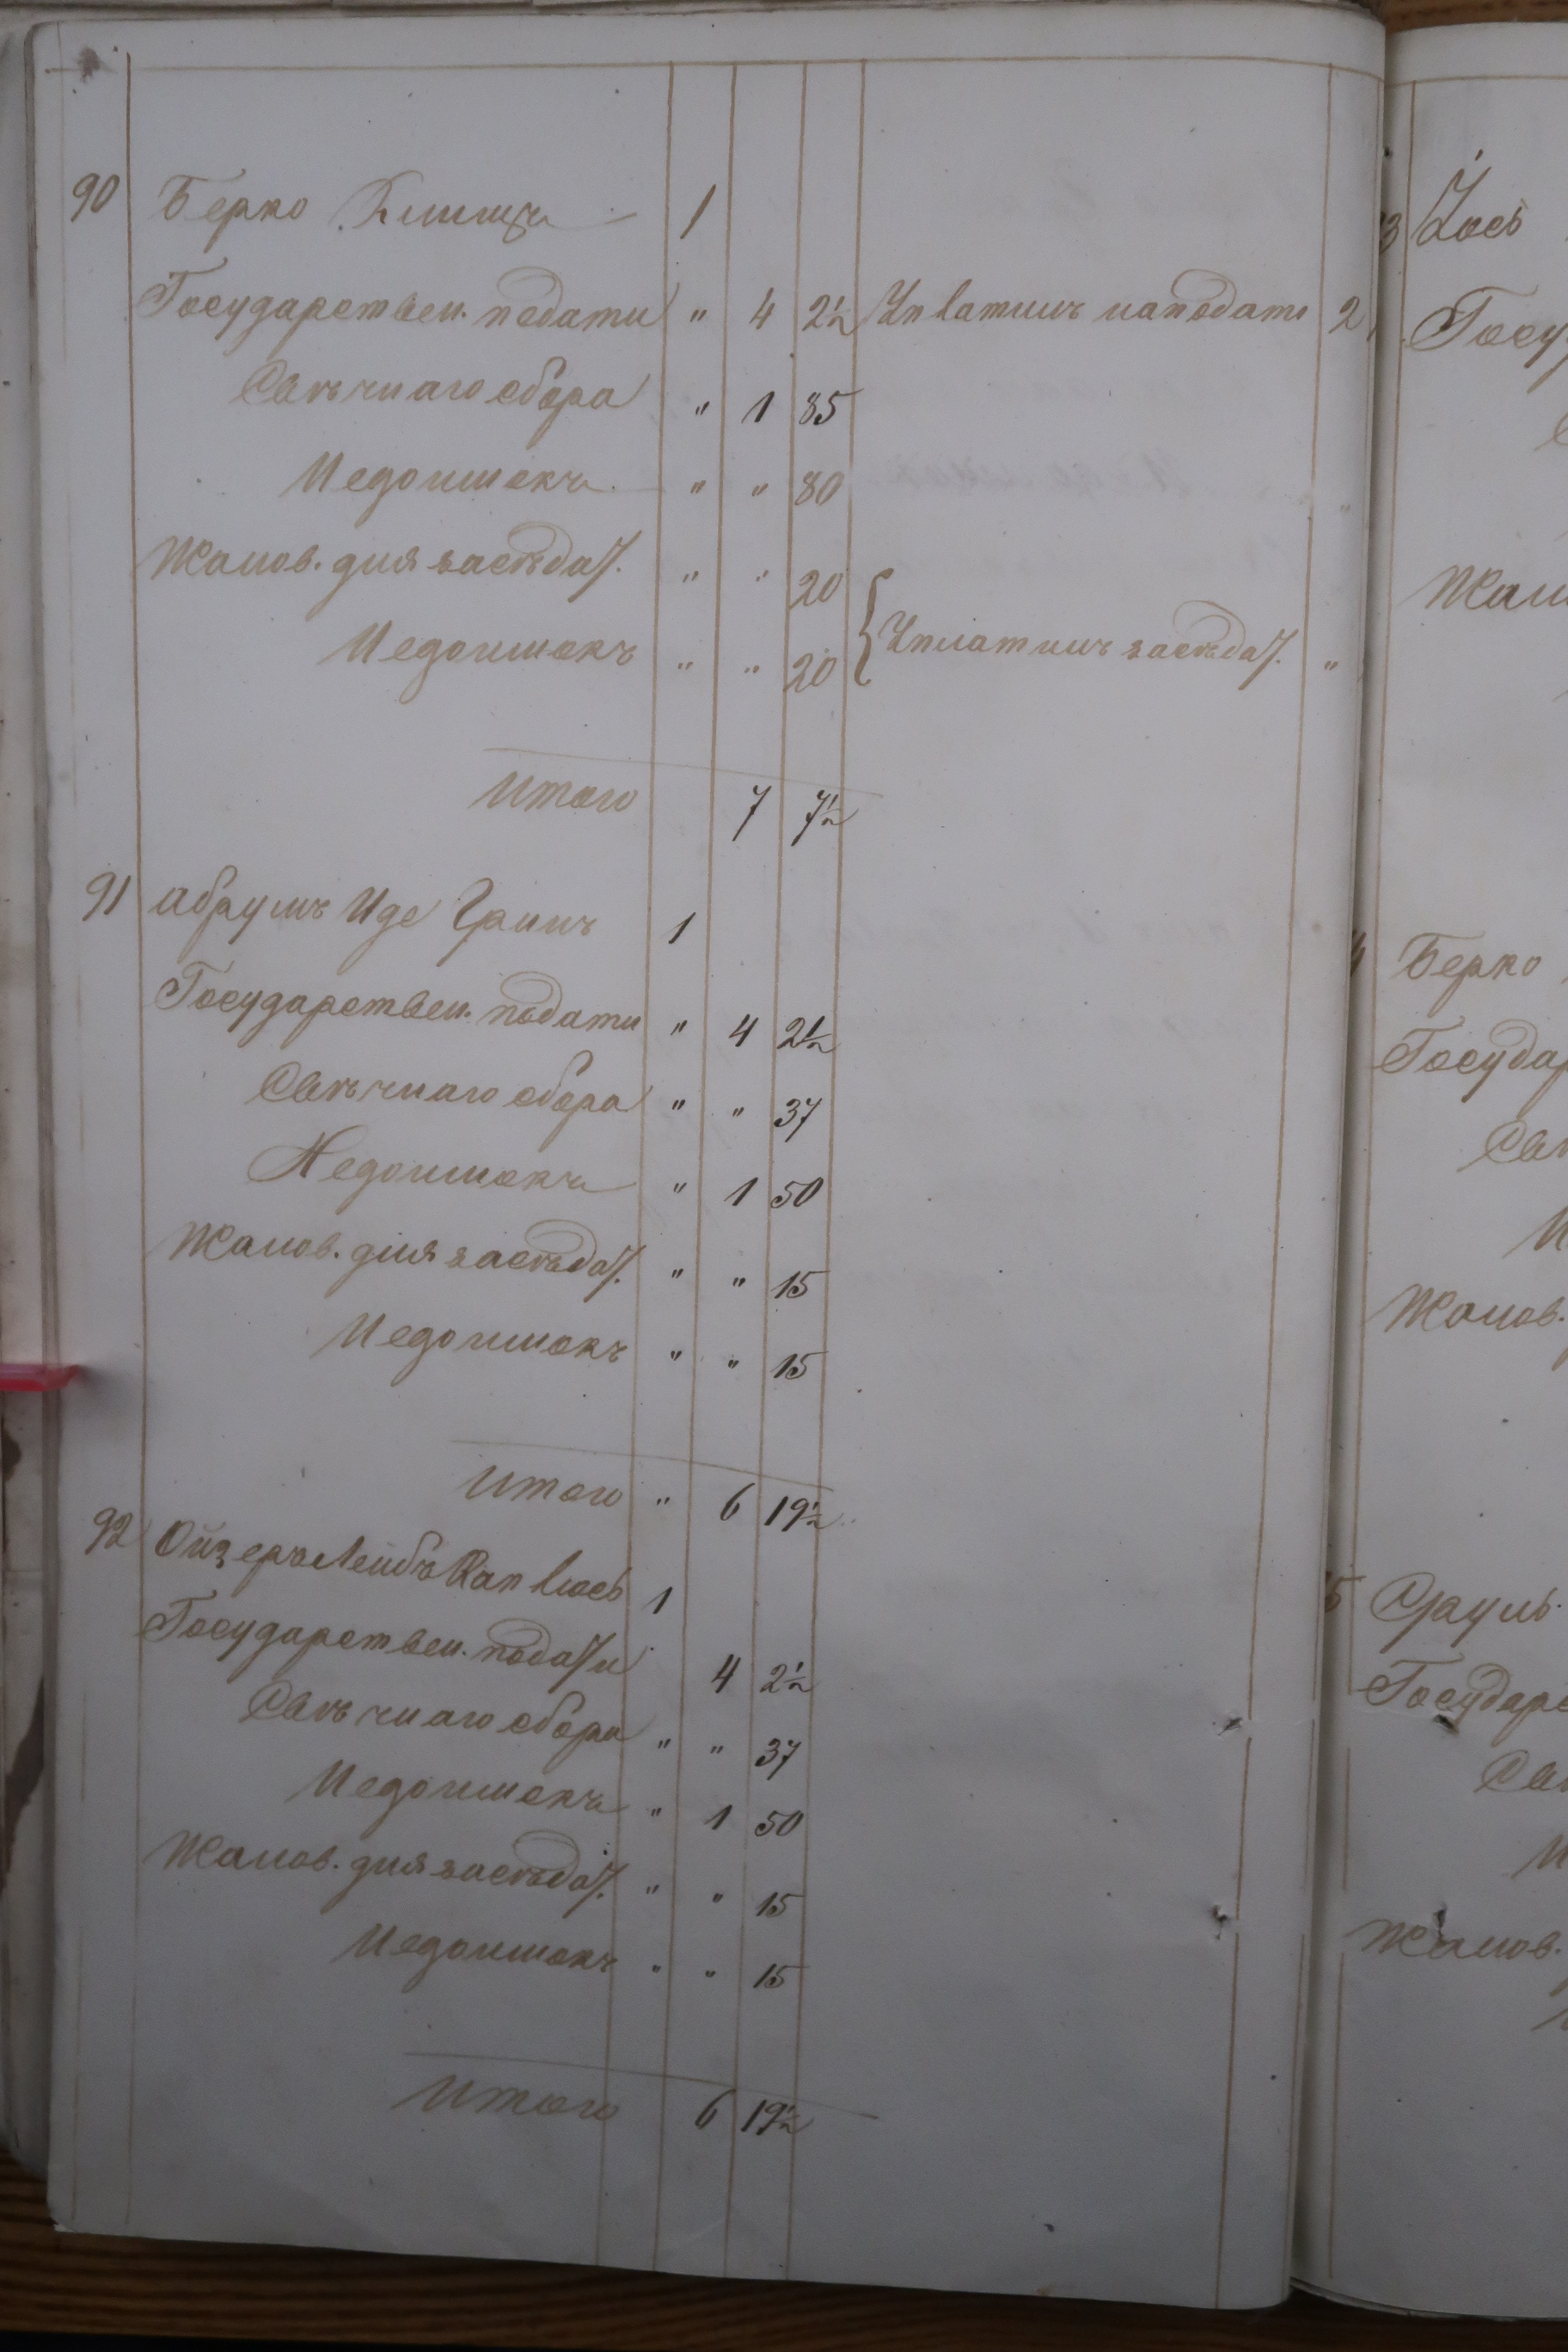 90 Берко Клингъ 1
Государствен. подати " 4 2½ Уплатилъ на подати 2
Свѣчнаго сбора " 1 85
Недоимокъ " " 80
Жалов. для засѣдат. " " 20
Недоимокъ " " 20 { Уплатилъ засѣдат. "
Итого 7 7½
91 Абрумъ Иде Гринъ 1
Государствен. подати " 4 2½
Свѣчнаго сбора " " 37
Недоимокъ " 1 50
Жалов. для засѣдат. " " 15
Недоимокъ " " 15
Итого " 6 19½
92 Ойзеръ Лейбъ Каплюсь 1
Государствен. подати 4 2½
Свѣчнаго сбора " " 37
Недоимокъ " 1 50
Жалов. для засѣдат. " " 15
Недоимокъ " " 15
Итого 6 19½
Госу
Жал
Берко
Государ
Свѣ
Н
Жалов.
5 Сруль
Государс
Свѣ
Н
Жалов.